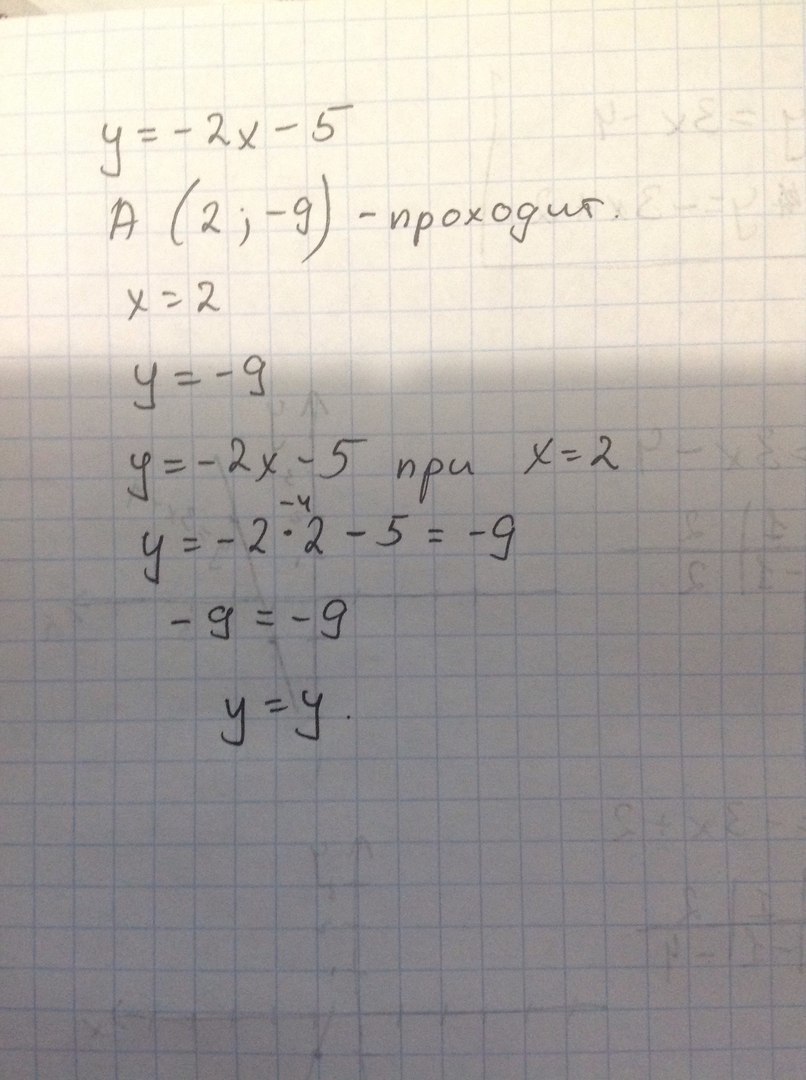 y = -2x - 5
A (2; -9) - проходит.
x = 2
y = -9
y = -2x - 5 при x = 2
-4
y = -2 · 2 - 5 = -9
-9 = -9
y = y.